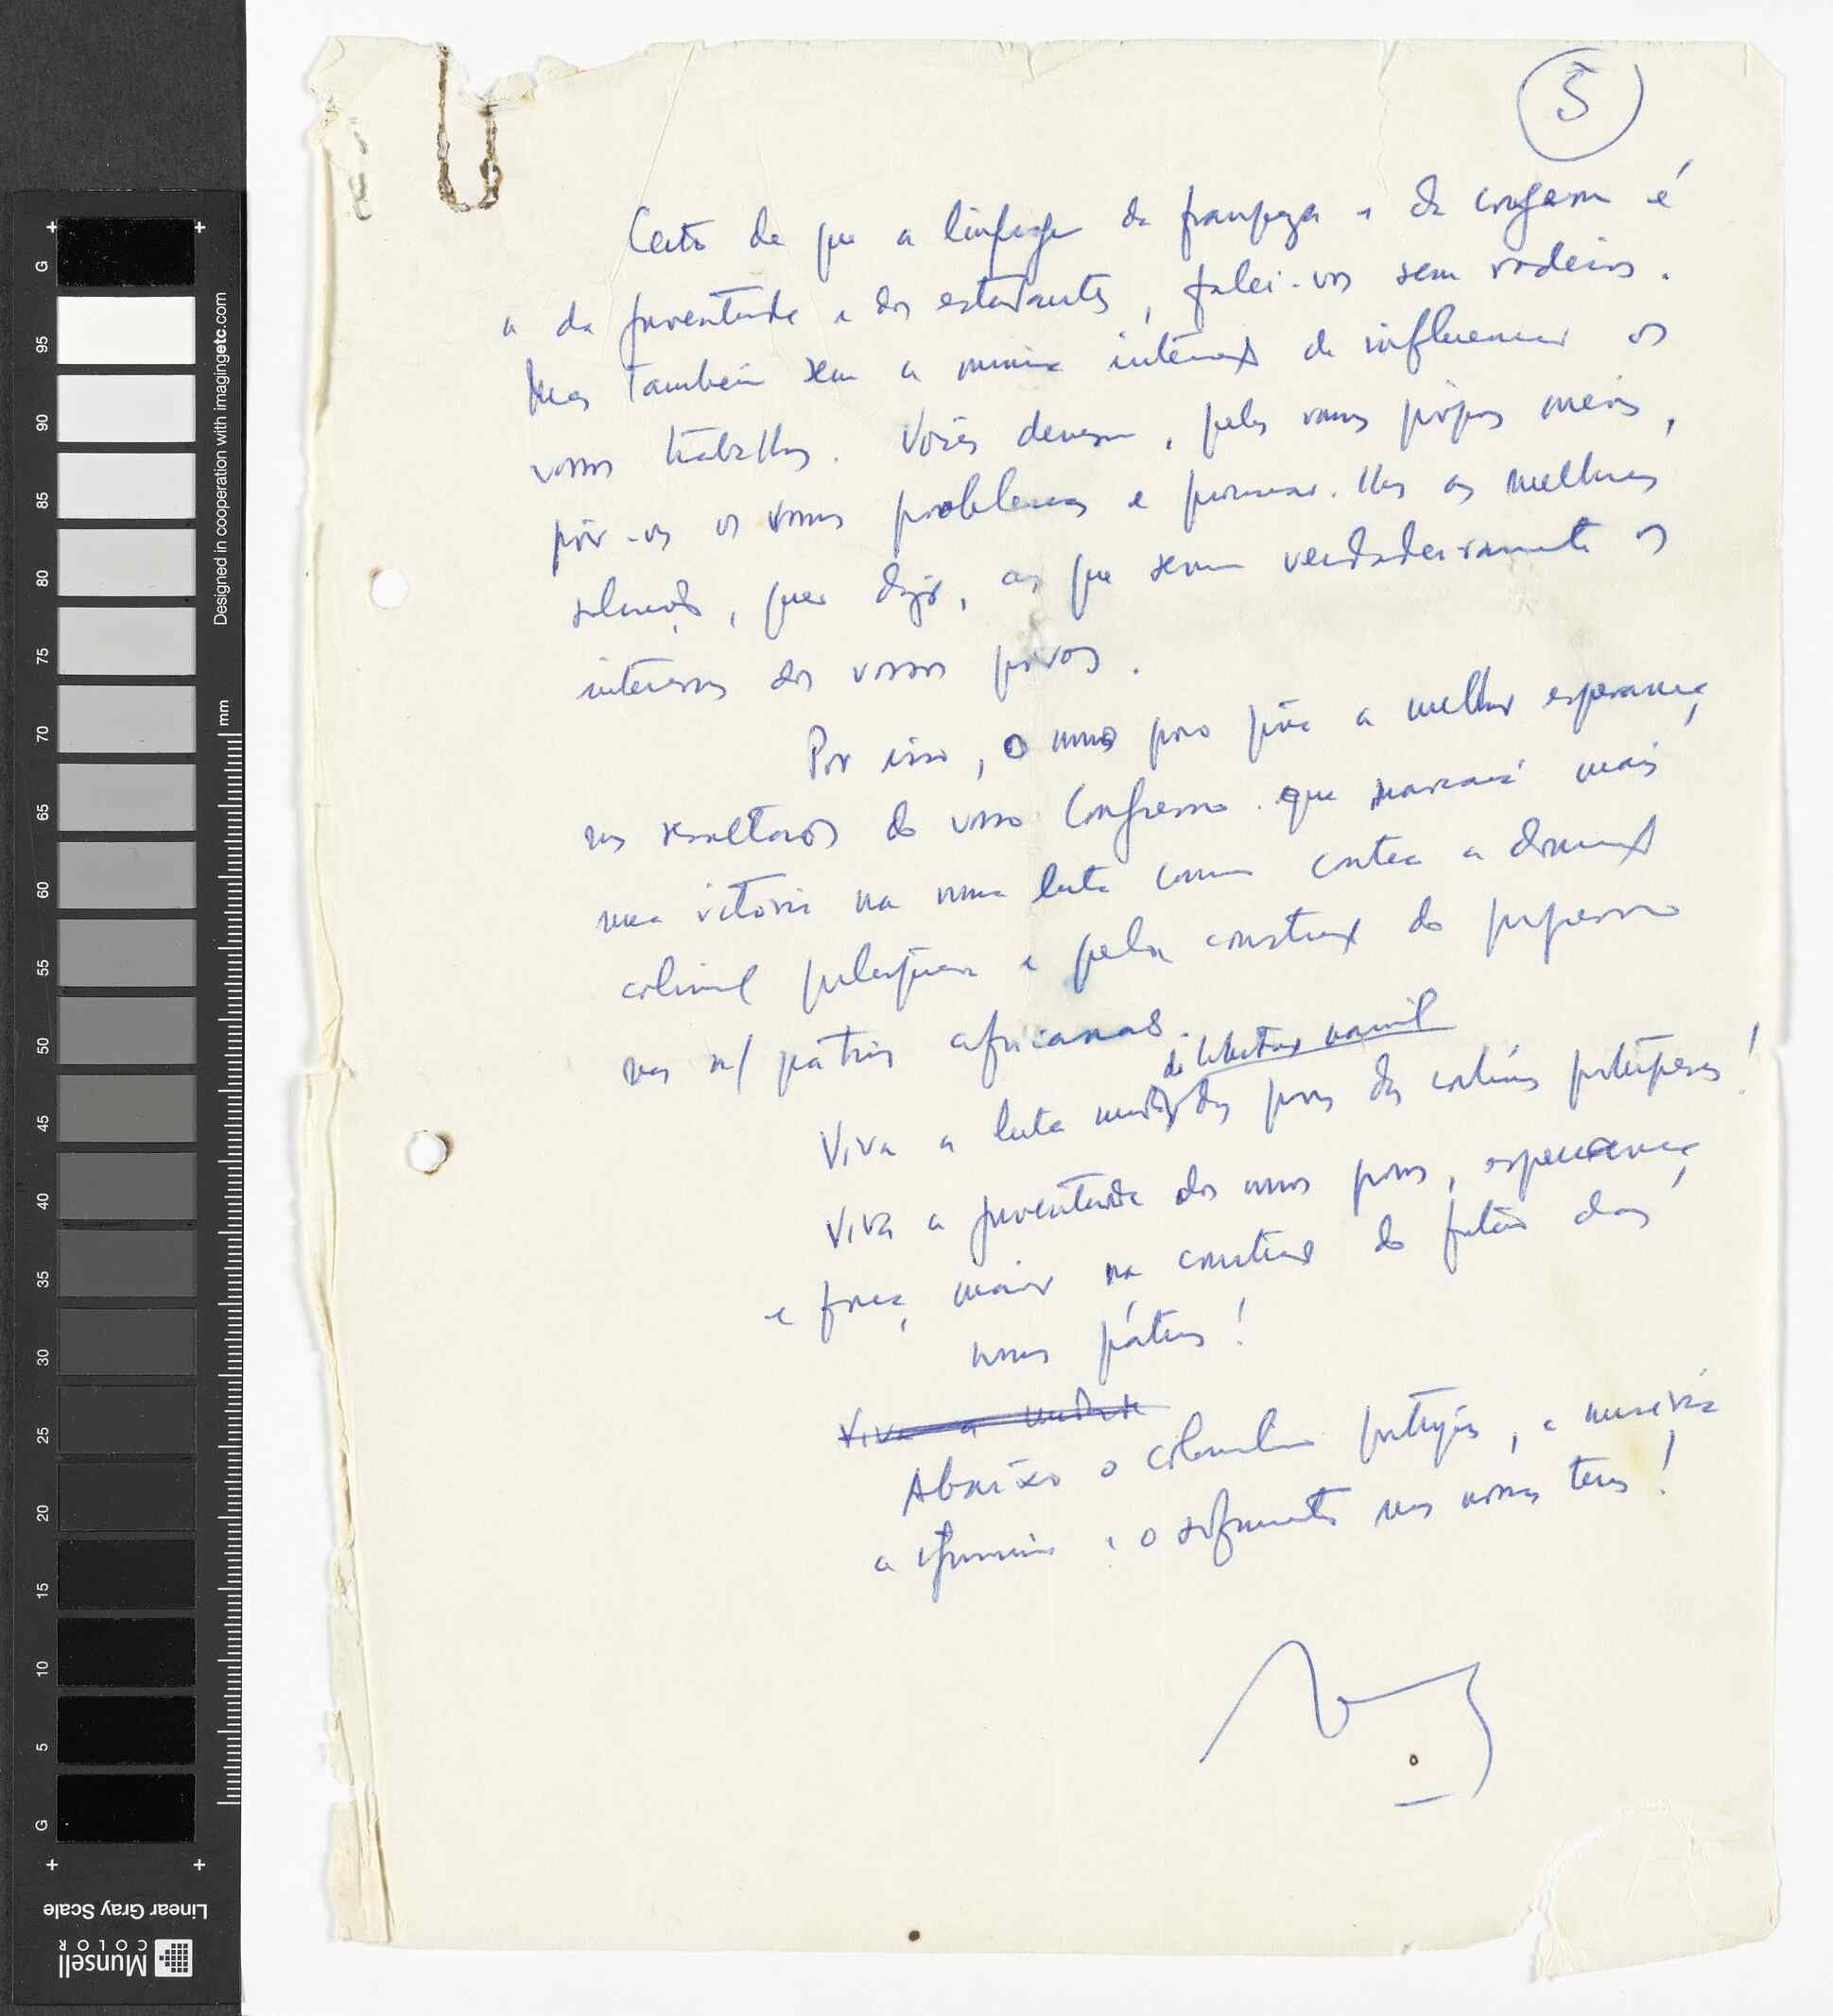 5
Certo de que a linguagem da franqueza e da coragem é
a da juventude e dos estudantes, falei-vos sem rodeios.
Mas também sem a mínima intenção de influenciar os
vossos trabalhos. Vocês devem, pelos vossos próprios meios,
pôr-vos os vossos problemas e procurar-lhes as melhores
soluções, quer dizer, as que servem verdadeiramente os
interesses dos vossos povos.
Por isso, o nosso povo põe a melhor esperança
nos resultados do vosso Congresso que marcará mais
uma vitória na nossa luta comum contra a dominação
colonial portuguesa e pela construção do progresso
nas n/ pátrias africanas.
de libertação nacional
Viva a luta dos povos das colónias portuguesas!
Viva a juventude dos nossos povos, esperança
e força maior na construção do futuro das
nossas pátrias!
Viva a unidade
Abaixo o colonialismo português, a miséria
a ignorância e o sofrimento nas nossas terras!
Designed in cooperation with imagingetc.com
mm
G
95
90
85
80
75
70
65
60
55
50
45
40
35
30
25
20
15
10
5
G
Linear Gray Scale
Munsell
COLOR